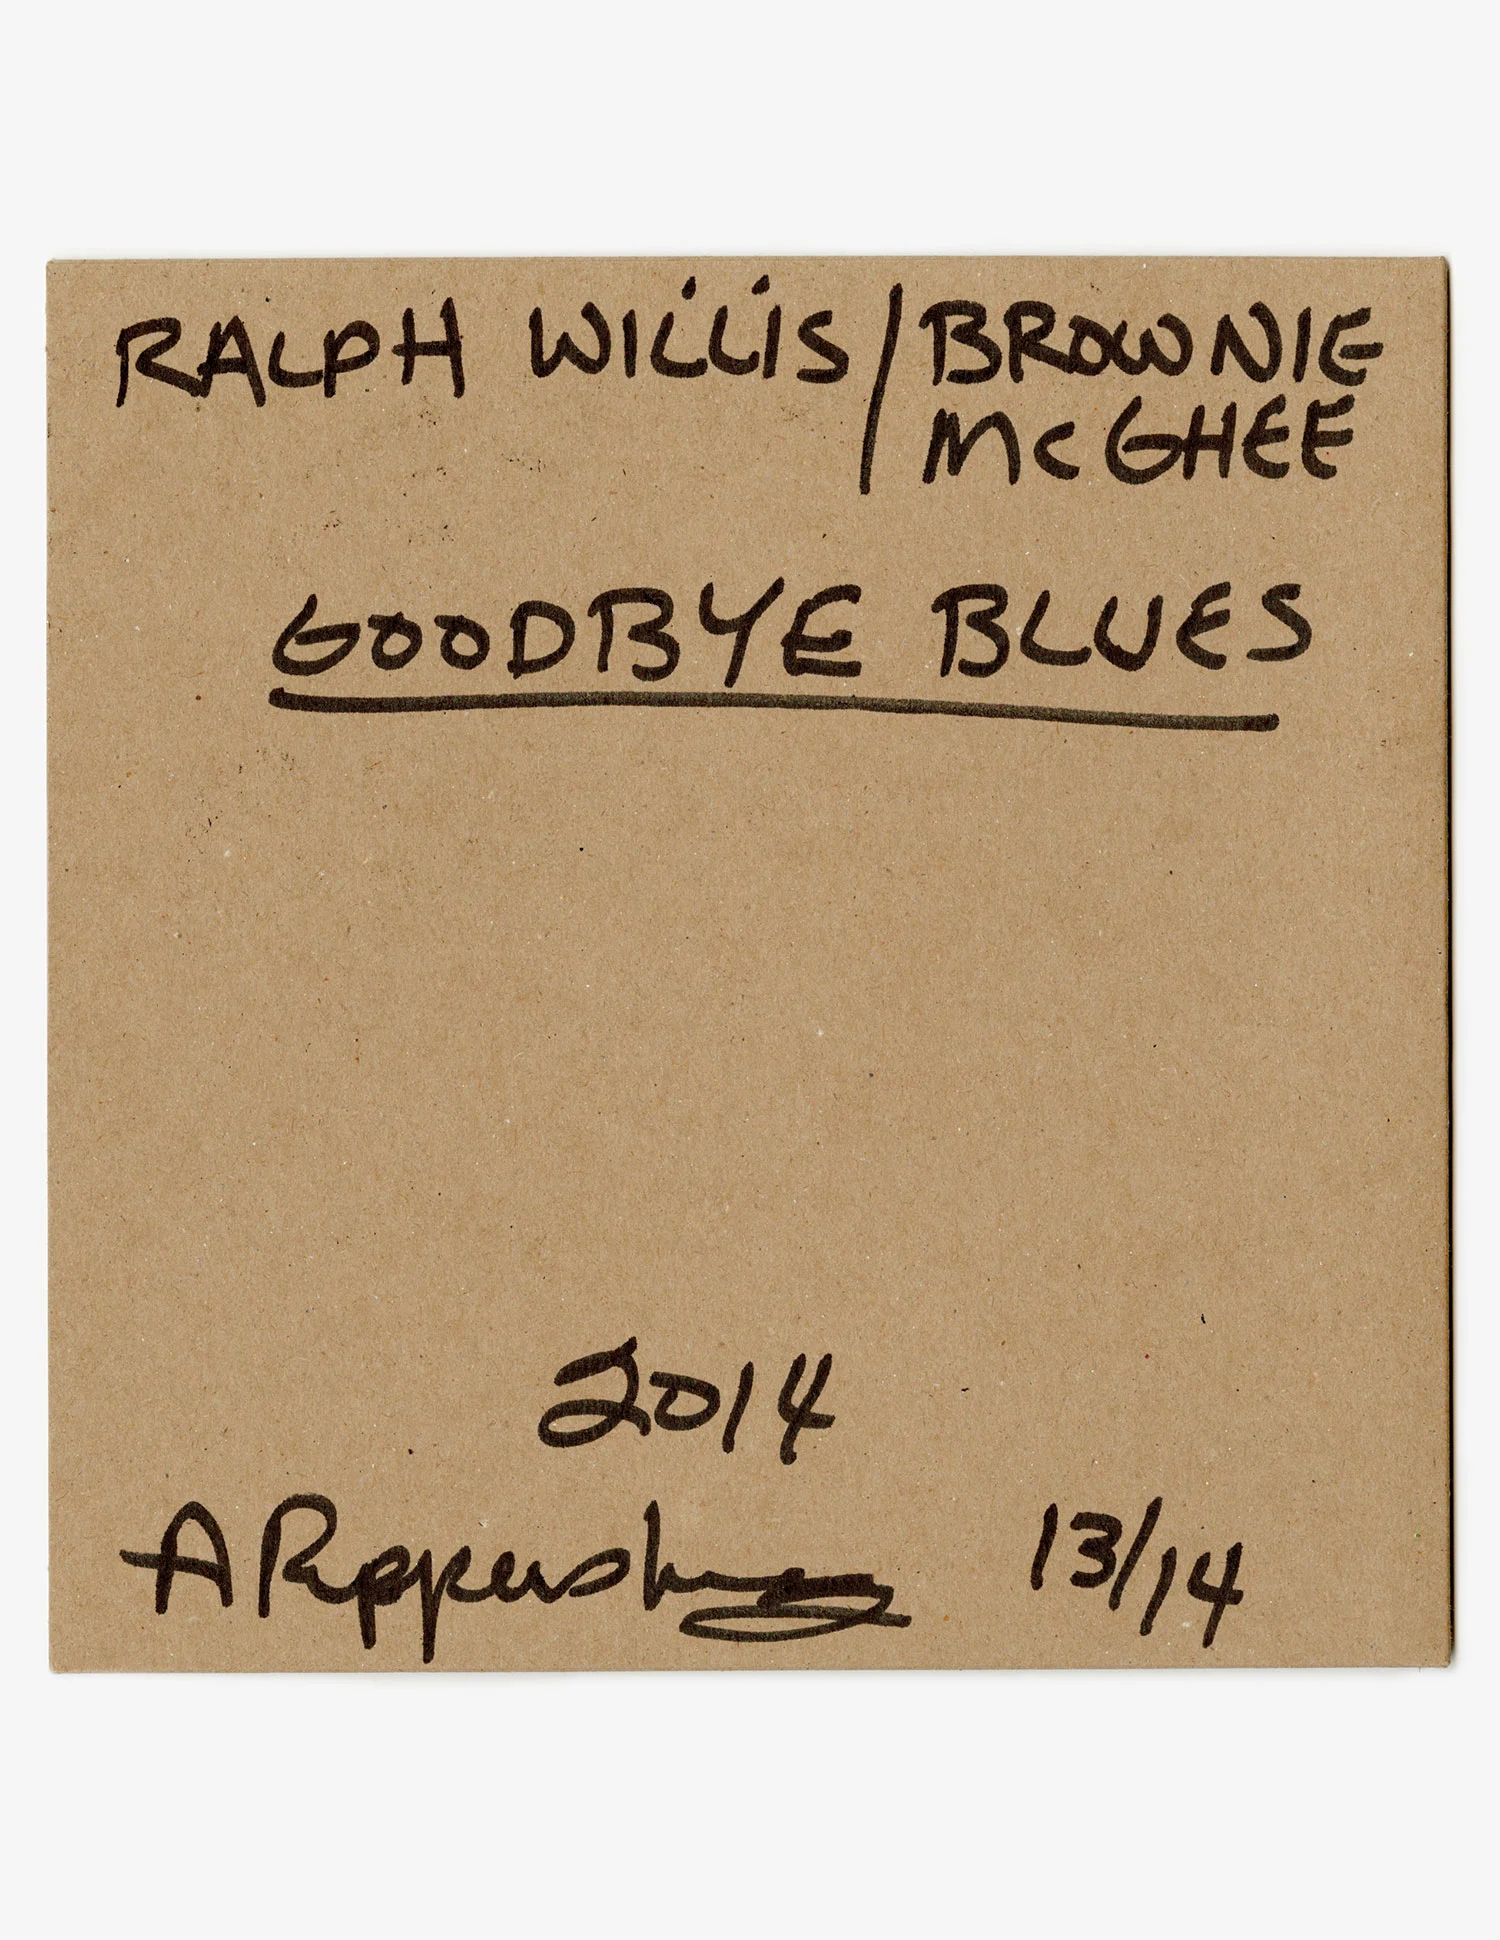 RALPH WILLIS/BROWNIE
McGHEE
GOODBYE BLUES
2014
A Ruppersberg 13/14